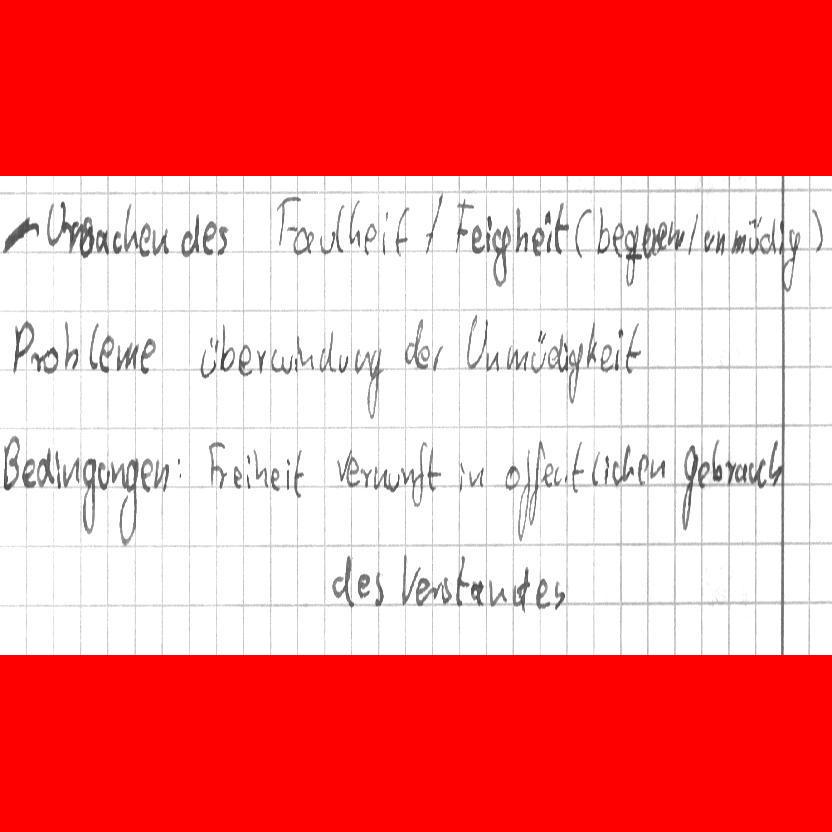 - Ursachen des Faulheit / Feigheit (bequem/unmüdig)
Probleme überwindung der Unmüdigkeit
Bedingungen: Freiheit Vernunft in öffentlichen gebrauch
des Verstandes